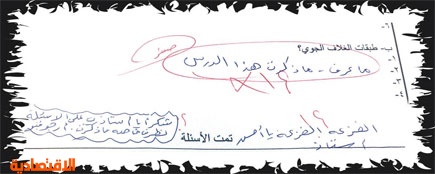 صفر
ب- طبقات الغلاف الجوي؟
١-
ما عرف - ماذكرت هذا الدرس
٢-
٣-
الفزعة الفزعة يا أحسن
استاذ
تمت الأسئلة
شكرا يا أستاذ على الأسئلة
الاقتصادية